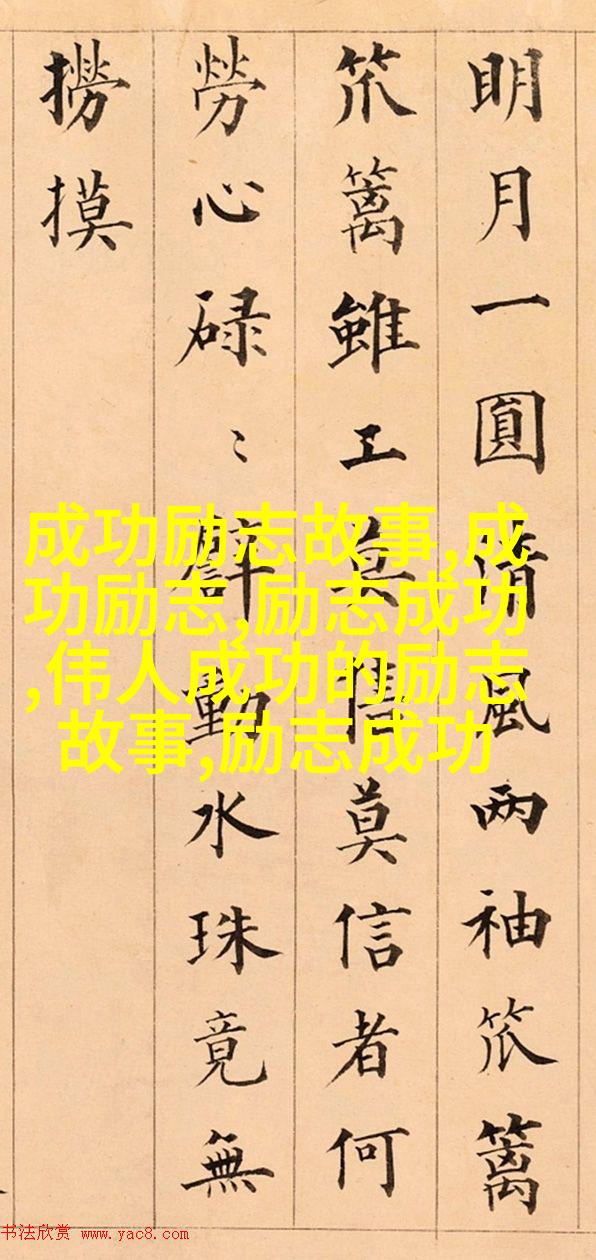 明月一圓清風两袖笊篱
笊篱雖工莫信莫信者何
勞心碌〻動水珠竟無
撈摸
成功励志故事,成
功励志,励志成功
,伟人成功的励志
故事,励志成功
书法欣赏 www.yac8.com